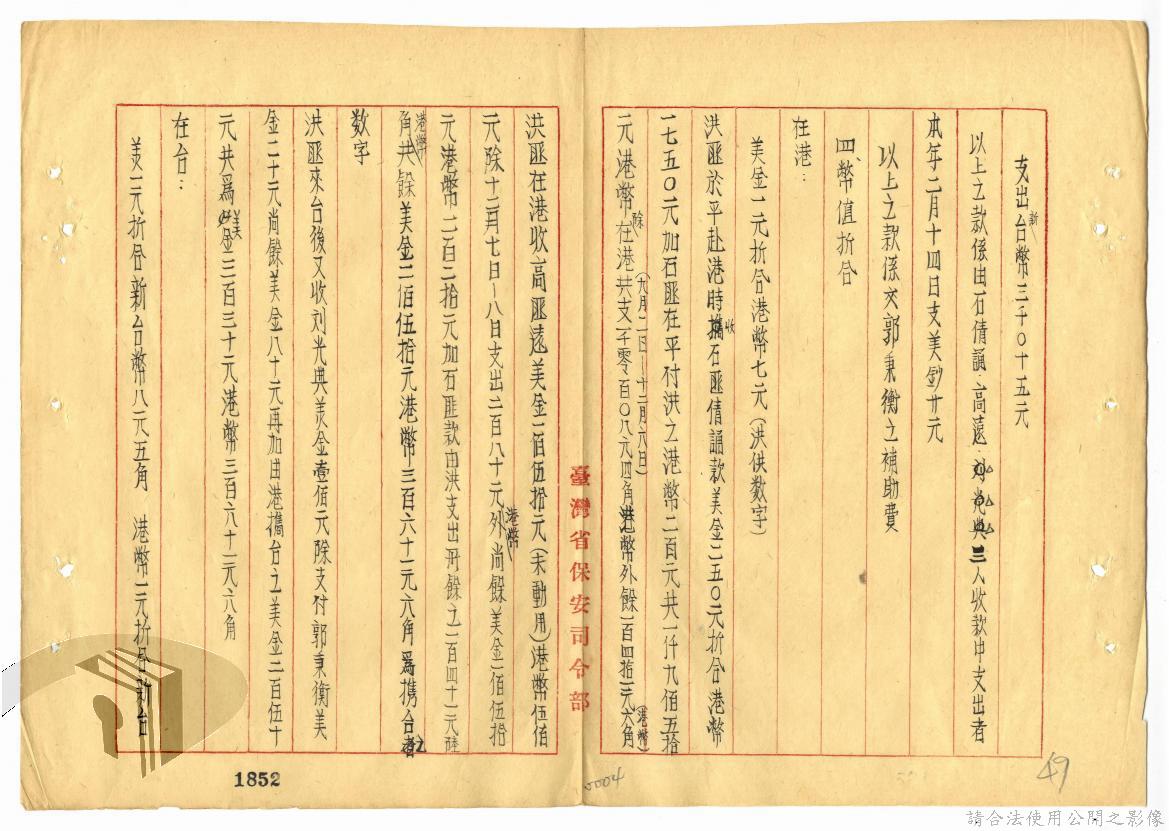 支出新台幣三千〇十五元
以上之款係由石倩誦、高遠、劉光典三人收款中支出者
本年二月十四日支美鈔廿元
以上之款係交郭秉衡之補助費
四、幣值折合
在港：
美金一元折合港幣七元(洪供數字)
洪匪於平赴港時收石匪倩誦款美金二五〇元折合港幣
一七五〇元加石匪在平付洪之港幣二百元共一仟九佰五拾
元港幣除在港共支(九月二日—十二月六日)一千零百〇八元四角港幣外餘一百四拾一元六角(港幣)
洪匪在港收高匪遠美金一佰伍拾元(未動用)港幣伍佰
元除十二月七日—八日支出二百八十元港幣外尚餘美金一佰伍拾
元港幣二百二拾元加石匪款由洪支出所餘之一百四十一元陸
角港幣共餘美金二佰伍拾元港幣三百六十一元六角為攜台之
数字
洪匪來台後又收刘光典美金壹佰元除支付郭秉衡美
金二十元尚餘美金八十元再加由港攜台之美金二百伍十
元共為美金三百三十元港幣三百六十一元六角
在台：
美一元折合新台幣八元五角 港幣一元折合新台
臺灣省保安司令部
1852
0004
49
請合法使用公開之影像